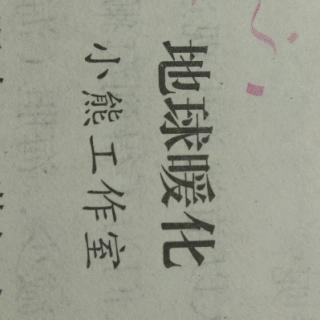 地球暖化
小熊工作室